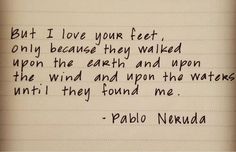 But I love your feet,
only because they walked
upon the earth and upon
the wind and upon the waters
until they found me.
- Pablo Neruda